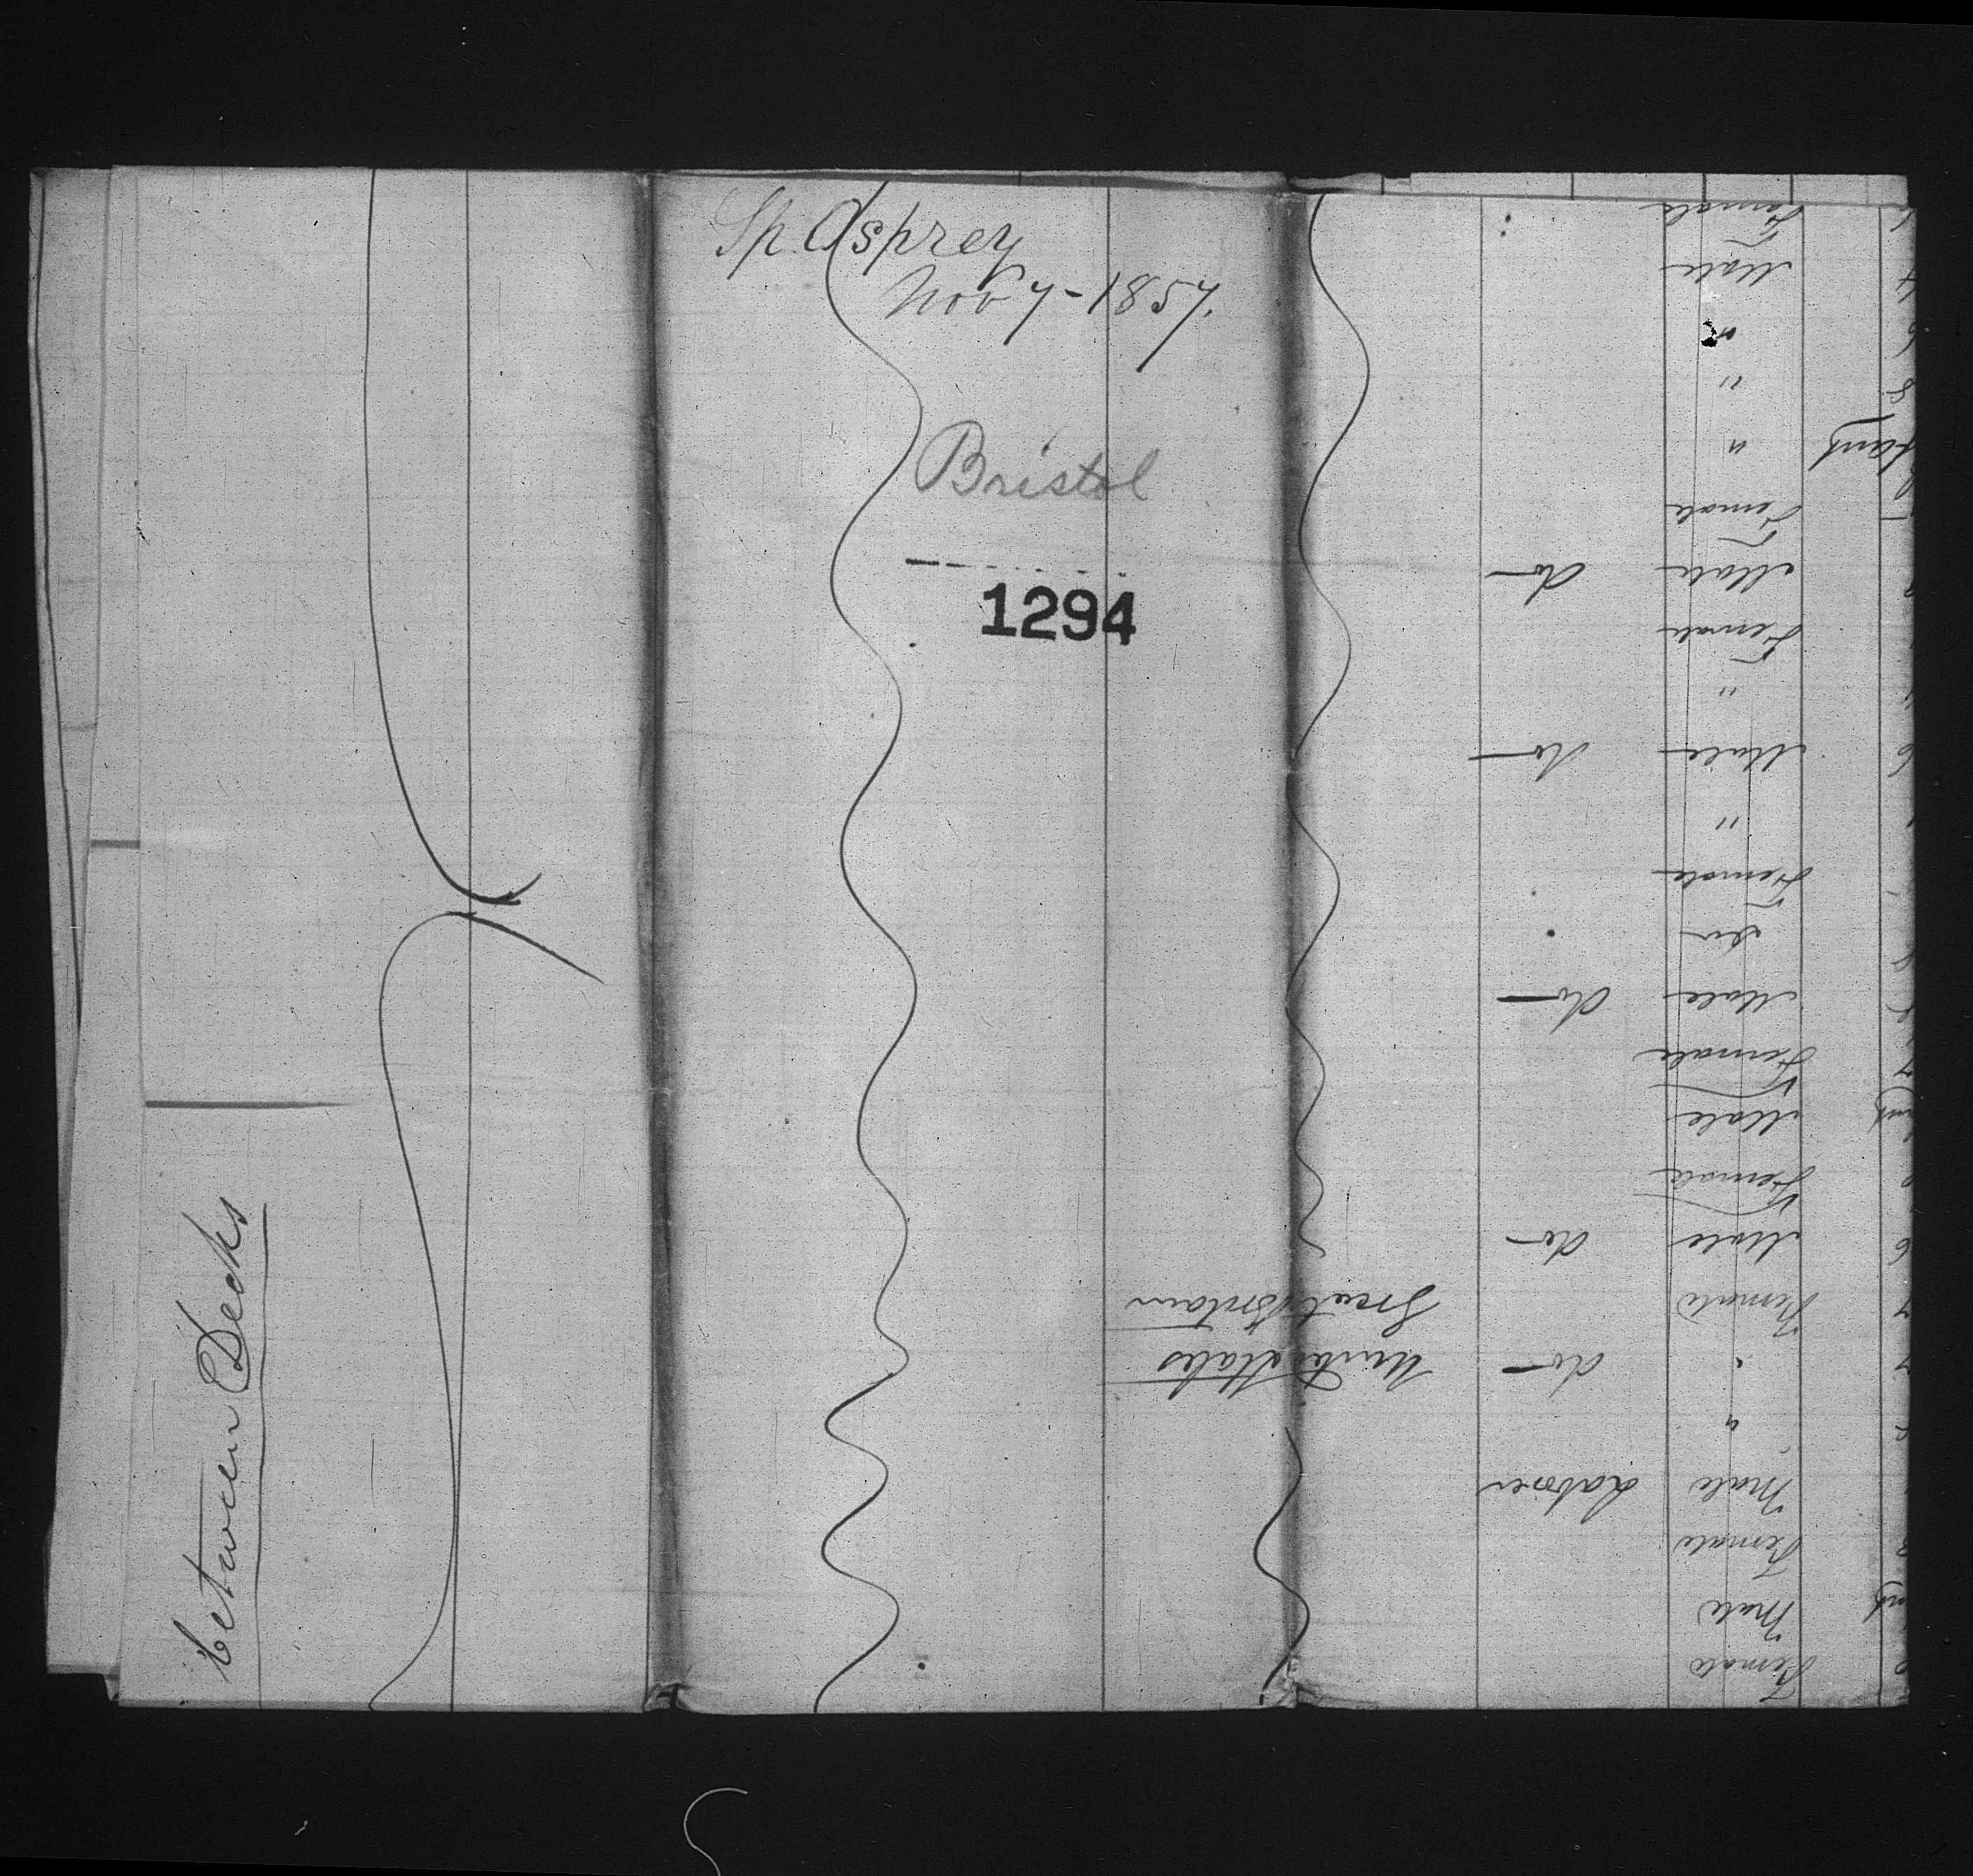 Sp. Osprey
Nov 7 - 1857.
Bristol
1294
between Decks
Female
Male
Female
Male
"
Laborer
"
"
do
United States
Female
Great Britain
Male
do
Female
Male
Female
Male
do
do
Female
"
Male
do
"
Female
Male
do
Female
"
"
"
Male
Female